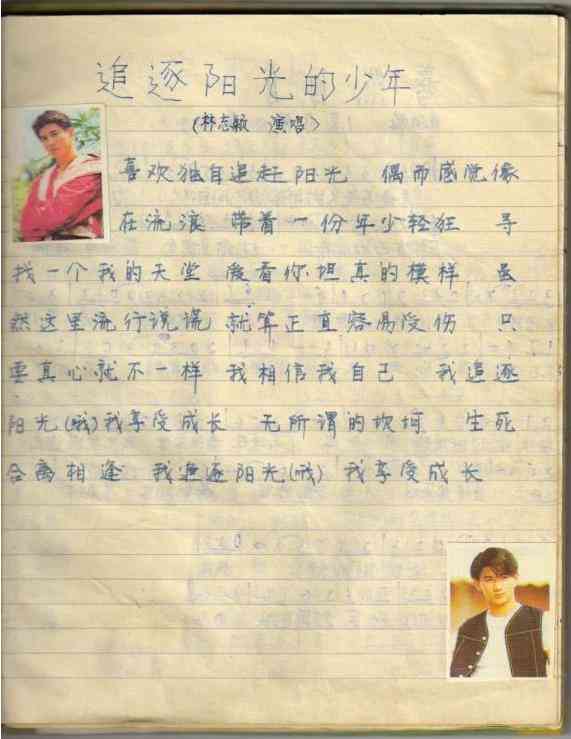 追逐阳光的少年
(林志颖 演唱)
喜欢独自追赶阳光 偶而感觉像
在流浪 带着一份年少轻狂 寻
找一个我的天堂 爱看你坦真的模样 虽
然这里流行说谎 就算正直容易受伤 只
要真心就不一样 我相信我自己 我追逐
阳光(哦)我享受成长 无所谓的坎坷 生死
合离相逢 我追逐阳光(哦) 我享受成长